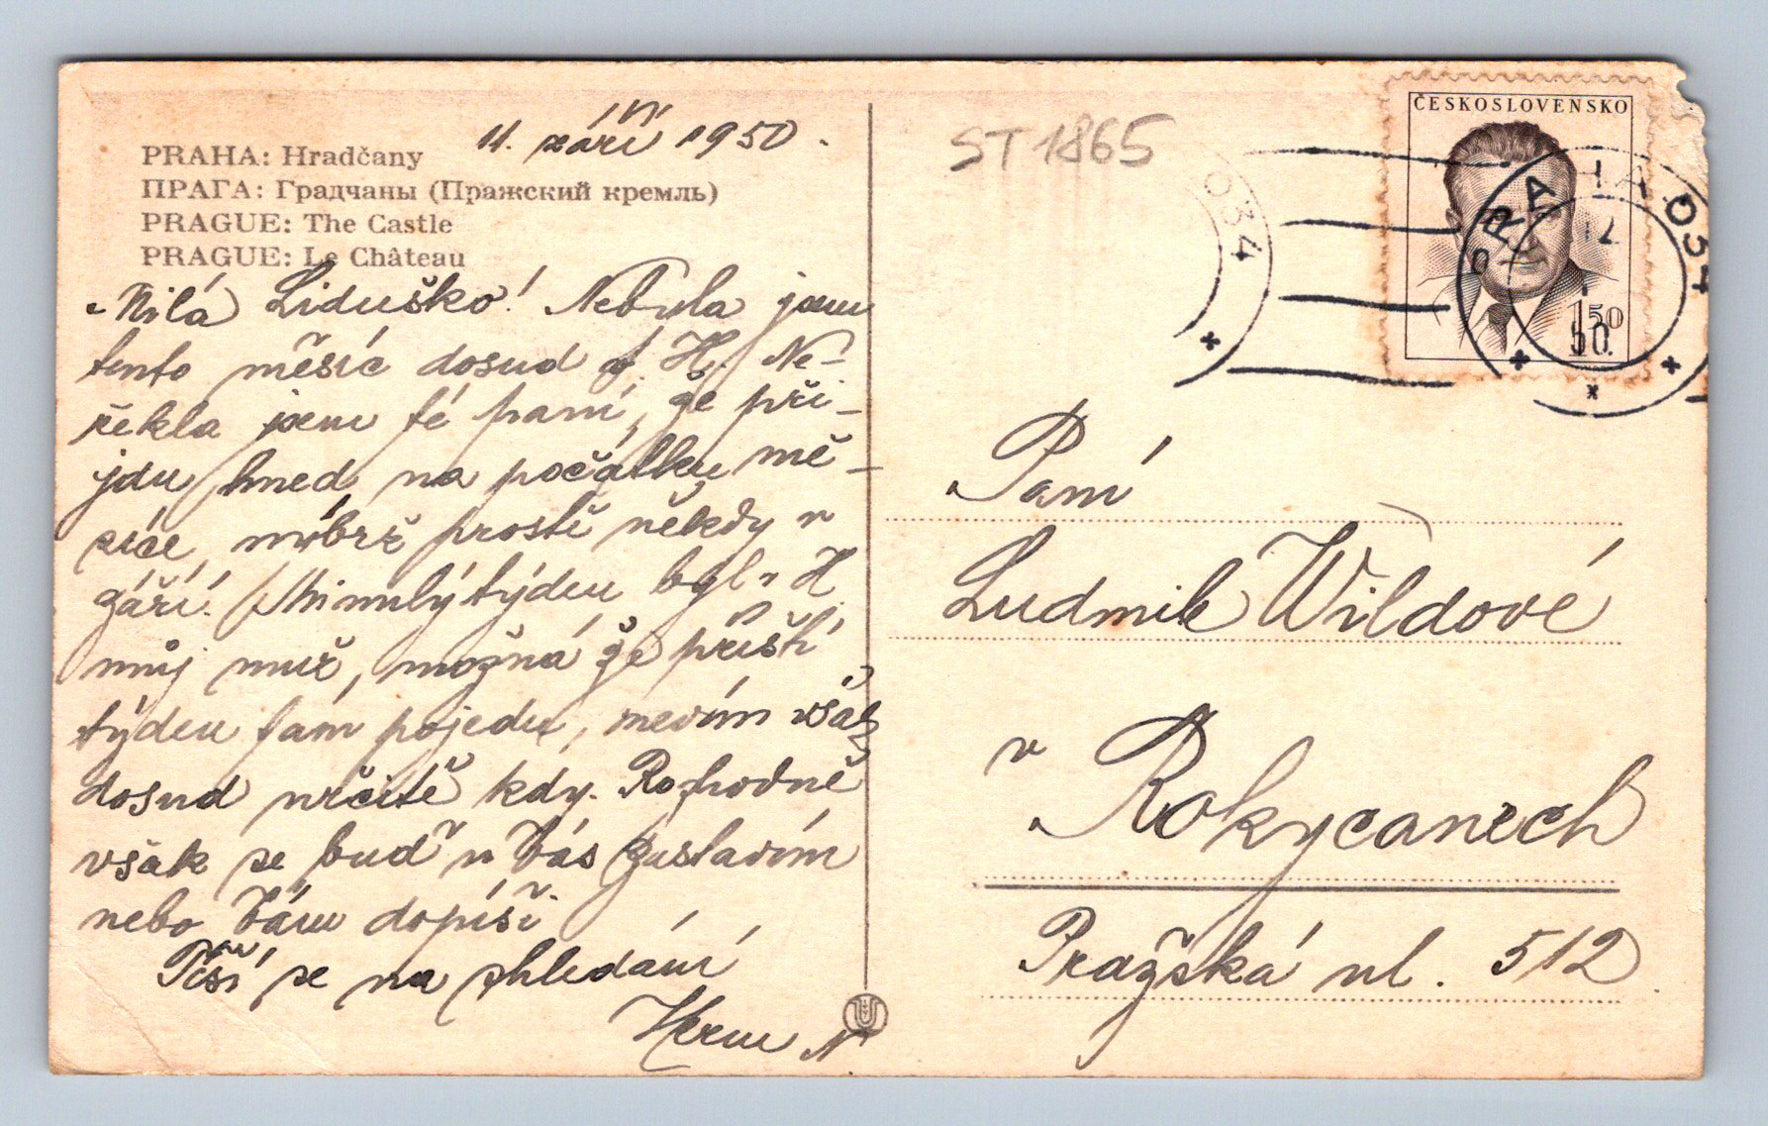 PRAHA: Hradčany
ПРАГА: Градчаны (Пражский кремль)
PRAGUE: The Castle
PRAGUE: Le Château
11. září 1950.
Milá Liduško! Nebyla jsem
tento měsíc dosud v H. Ne-
řekla jsem té paní, že při-
jdu hned na počátku mě-
síce, nýbrž prostě někdy v
září. Minulý týden byl v H.
můj muž, možná že příští
týden tam pojedu, nevím však
dosud určitě kdy. Rozhodně
však se buď u Vás zastavím
nebo Vám dopíši.
Těší se na shledání
ST 1865
ČESKOSLOVENSKO
1.50
PRAHA 034
034
Paní
Ludmile Wildové
v
Rokycanech
Pražská ul. 512